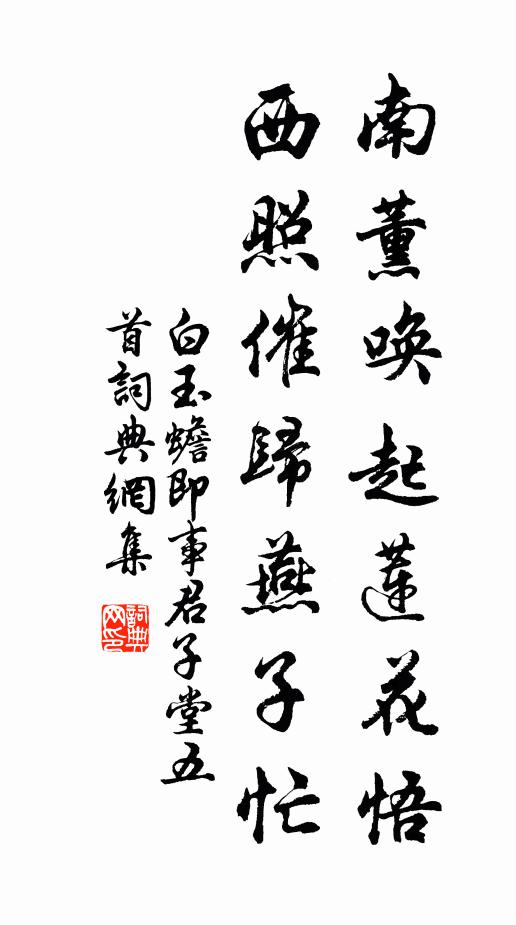 南薰唤起蓮花悟
西照催歸燕子忙
白玉蟾即事君子堂五
首詞典網集
詞典网印